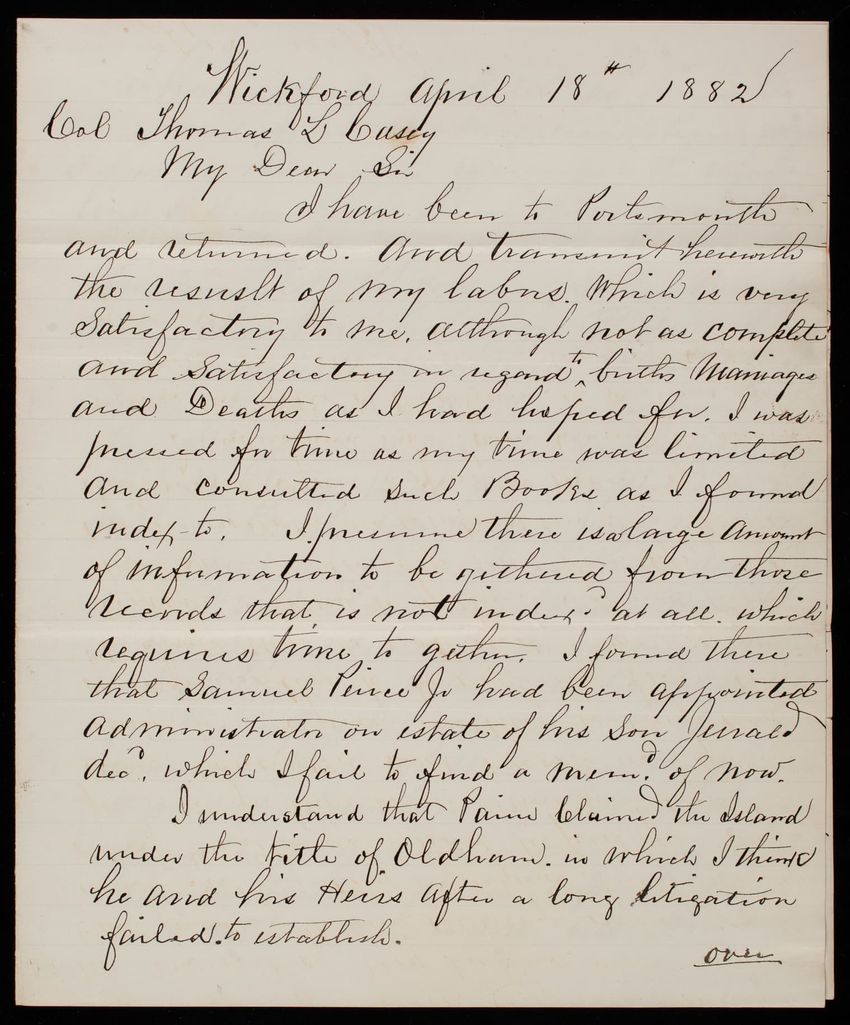 Wickford April 18th 1882
Col Thomas L Casey
My Dear Sir
I have been to Portsmouth
and returned. And transmit herewith
the resuslt of my labors. Which is very
Satisfactory to me, although not as complete
and Satisfactory in regard to births Marriages
and Deaths as I had hoped for. I was
pressed for time as my time was limited
and consulted such Books as I found
index to. I presume there is a large amount
of information to be gathered from those
records that is not indexd at all. which
requires time to gather. I found there
that Samuel Peirce Jr had been appointed
Administrator on estate of his Son
decd, which I fail to find a memd of now.
I understand that Paine Claimed the Island
under the title of Oldham. in which I think
he and his Heirs after a long litigation
failed to establish.
over